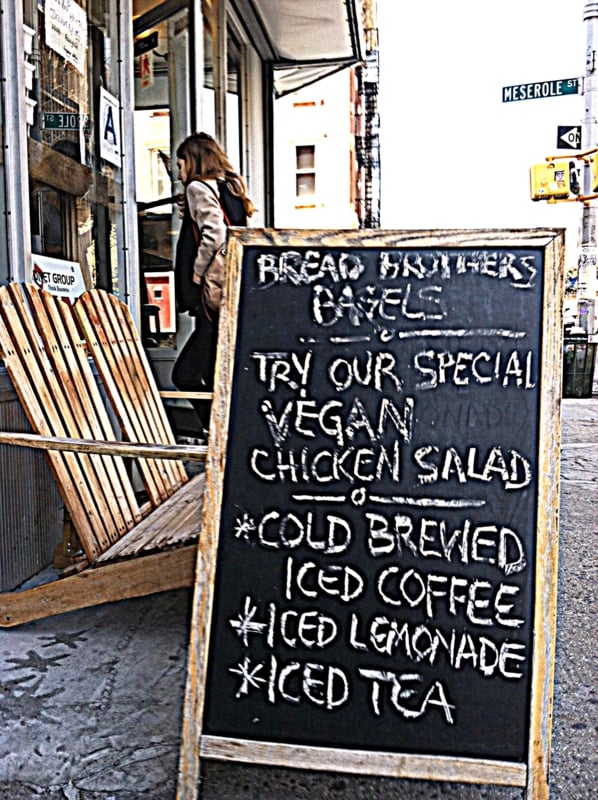 MESEROLE ST
A
NET GROUP
BREAD BROTHERS
BAGELS
TRY OUR SPECIAL
VEGAN
CHICKEN SALAD
*COLD BREWED
ICED COFFEE
*ICED LEMONADE
*ICED TEA